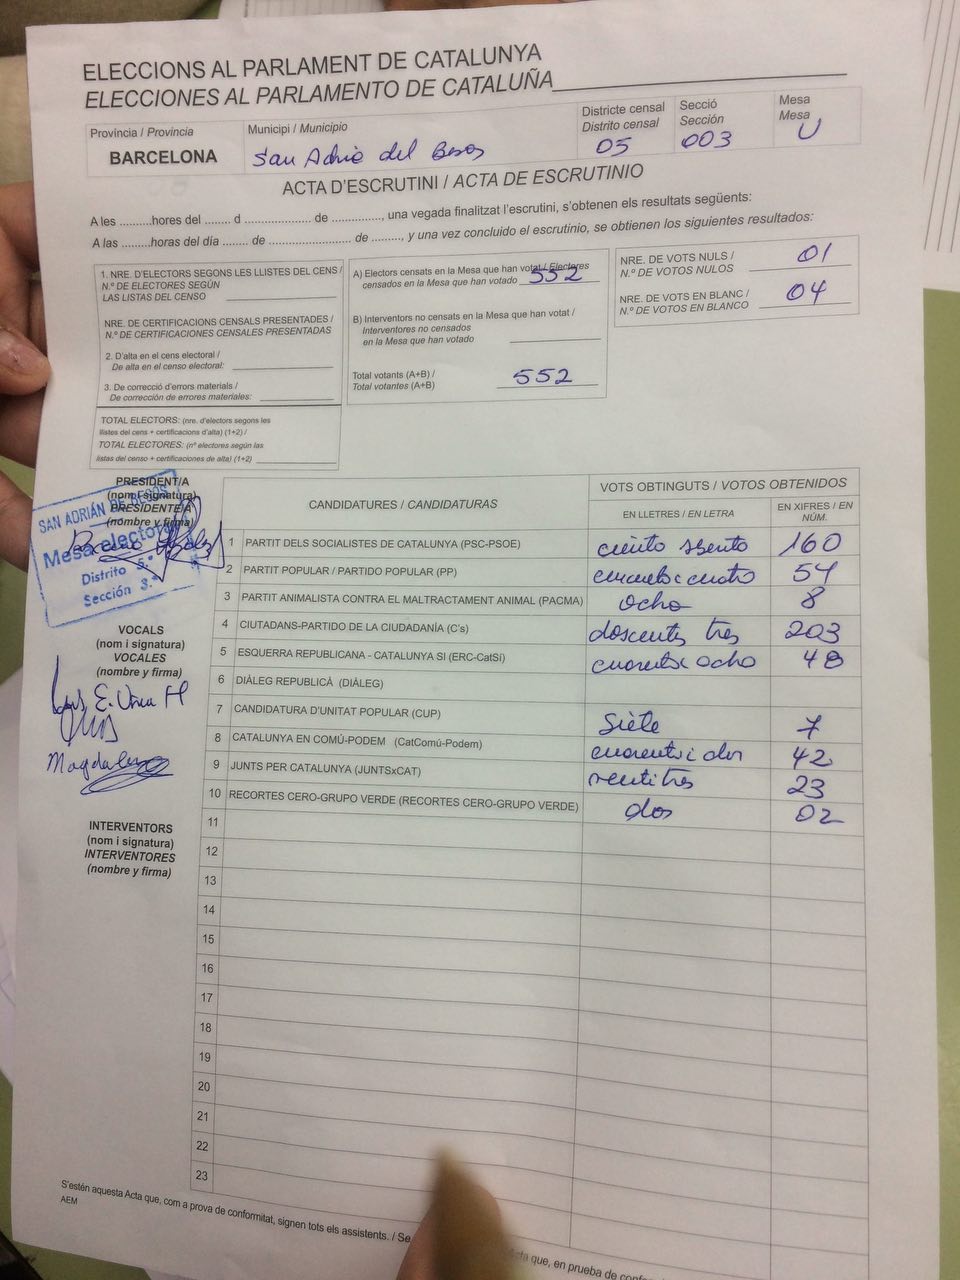 ELECCIONS AL PARLAMENT DE CATALUNYA
ELECCIONES AL PARLAMENTO DE CATALUÑA
Provincia / Provincia
BARCELONA
Municipi / Municipio
San Adrio del Besos
Districte censal
Distrito censal
05
Secció
Sección
003
Mesa
Mesa
U
ACTA D'ESCRUTINI / ACTA DE ESCRUTINIO
A les ..........hores del ........ d ..................... de ..............., una vegada finalitzat l'escrutini, s'obtenen els resultats següents:
A las ..........horas del día ........ de ......................... de ........., y una vez concluido el escrutinio, se obtienen los siguientes resultados:
1. NRE. D'ELECTORS SEGONS LES LLISTES DEL CENS /
N.º DE ELECTORES SEGÚN
LAS LISTAS DEL CENSO
NRE. DE CERTIFICACIONS CENSALS PRESENTADES /
N.º DE CERTIFICACIONES CENSALES PRESENTADAS
2. D'alta en el cens electoral /
De alta en el censo electoral:
3. De correcció d'errors materials /
De corrección de errores materiales:
TOTAL ELECTORS: (nre. d'electors segons les
llistes del cens + certificacions d'alta) (1+2) /
TOTAL ELECTORES: (nº electores según las
listas del censo + certificaciones de alta) (1+2)
A) Electors censats en la Mesa que han votat / Electores
censados en la Mesa que han votado 552
B) Interventors no censats en la Mesa que han votat /
Interventores no censados
en la Mesa que han votado
Total votants (A+B) /
Total votantes (A+B) 552
NRE. DE VOTS NULS /
N.º DE VOTOS NULOS 01
NRE. DE VOTS EN BLANC /
N.º DE VOTOS EN BLANCO 04
PRESIDENT/A
(nom i signatura)
PRESIDENTE/A
(nombre y firma)
SAN ADRIÁN DE BESOS
Mesa electoral
Distrito 5.º
Sección 3.ª
VOCALS
(nom i signatura)
VOCALES
(nombre y firma)
Magdalena
INTERVENTORS
(nom i signatura)
INTERVENTORES
(nombre y firma)
CANDIDATURES / CANDIDATURAS
VOTS OBTINGUTS / VOTOS OBTENIDOS
EN LLETRES / EN LETRA
EN XIFRES / EN NÚM.
1 PARTIT DELS SOCIALISTES DE CATALUNYA (PSC-PSOE) ciento sesento 160
2 PARTIT POPULAR / PARTIDO POPULAR (PP) cincuenta i cuatro 54
3 PARTIT ANIMALISTA CONTRA EL MALTRACTAMENT ANIMAL (PACMA) ocho 8
4 CIUTADANS-PARTIDO DE LA CIUDADANÍA (C's) doscentos tres 203
5 ESQUERRA REPUBLICANA - CATALUNYA SI (ERC-CatSí) cuarenta i ocho 48
6 DIÀLEG REPUBLICÀ (DIÀLEG)
7 CANDIDATURA D'UNITAT POPULAR (CUP) siete 7
8 CATALUNYA EN COMÚ-PODEM (CatComú-Podem) cuarenta i dos 42
9 JUNTS PER CATALUNYA (JUNTSxCAT) veintitres 23
10 RECORTES CERO-GRUPO VERDE (RECORTES CERO-GRUPO VERDE) dos 02
11
12
13
14
15
16
17
18
19
20
21
22
23
S'estén aquesta Acta que, com a prova de conformitat, signen tots els assistents. / Se
cta que, en prueba de
AEM